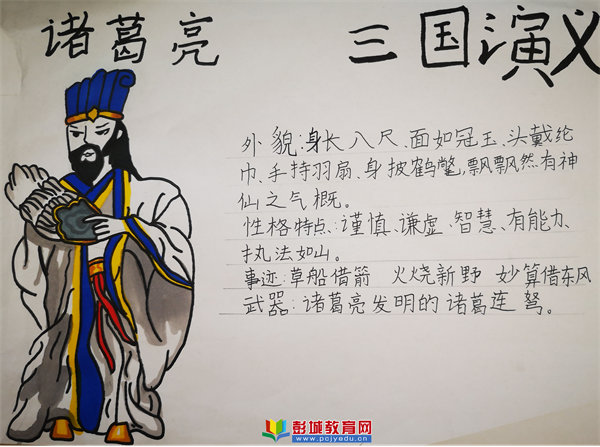 诸葛亮 三国演义
外貌:身长八尺、面如冠玉、头戴纶
巾、手持羽扇、身披鹤氅,飘飘然有神
仙之气概。
性格特点:谨慎、谦虚、智慧、有能力、
执法如山。
事迹:草船借箭 火烧新野 妙算借东风
武器:诸葛亮发明的诸葛连弩。
彭城教育网
www.pcjyedu.cn